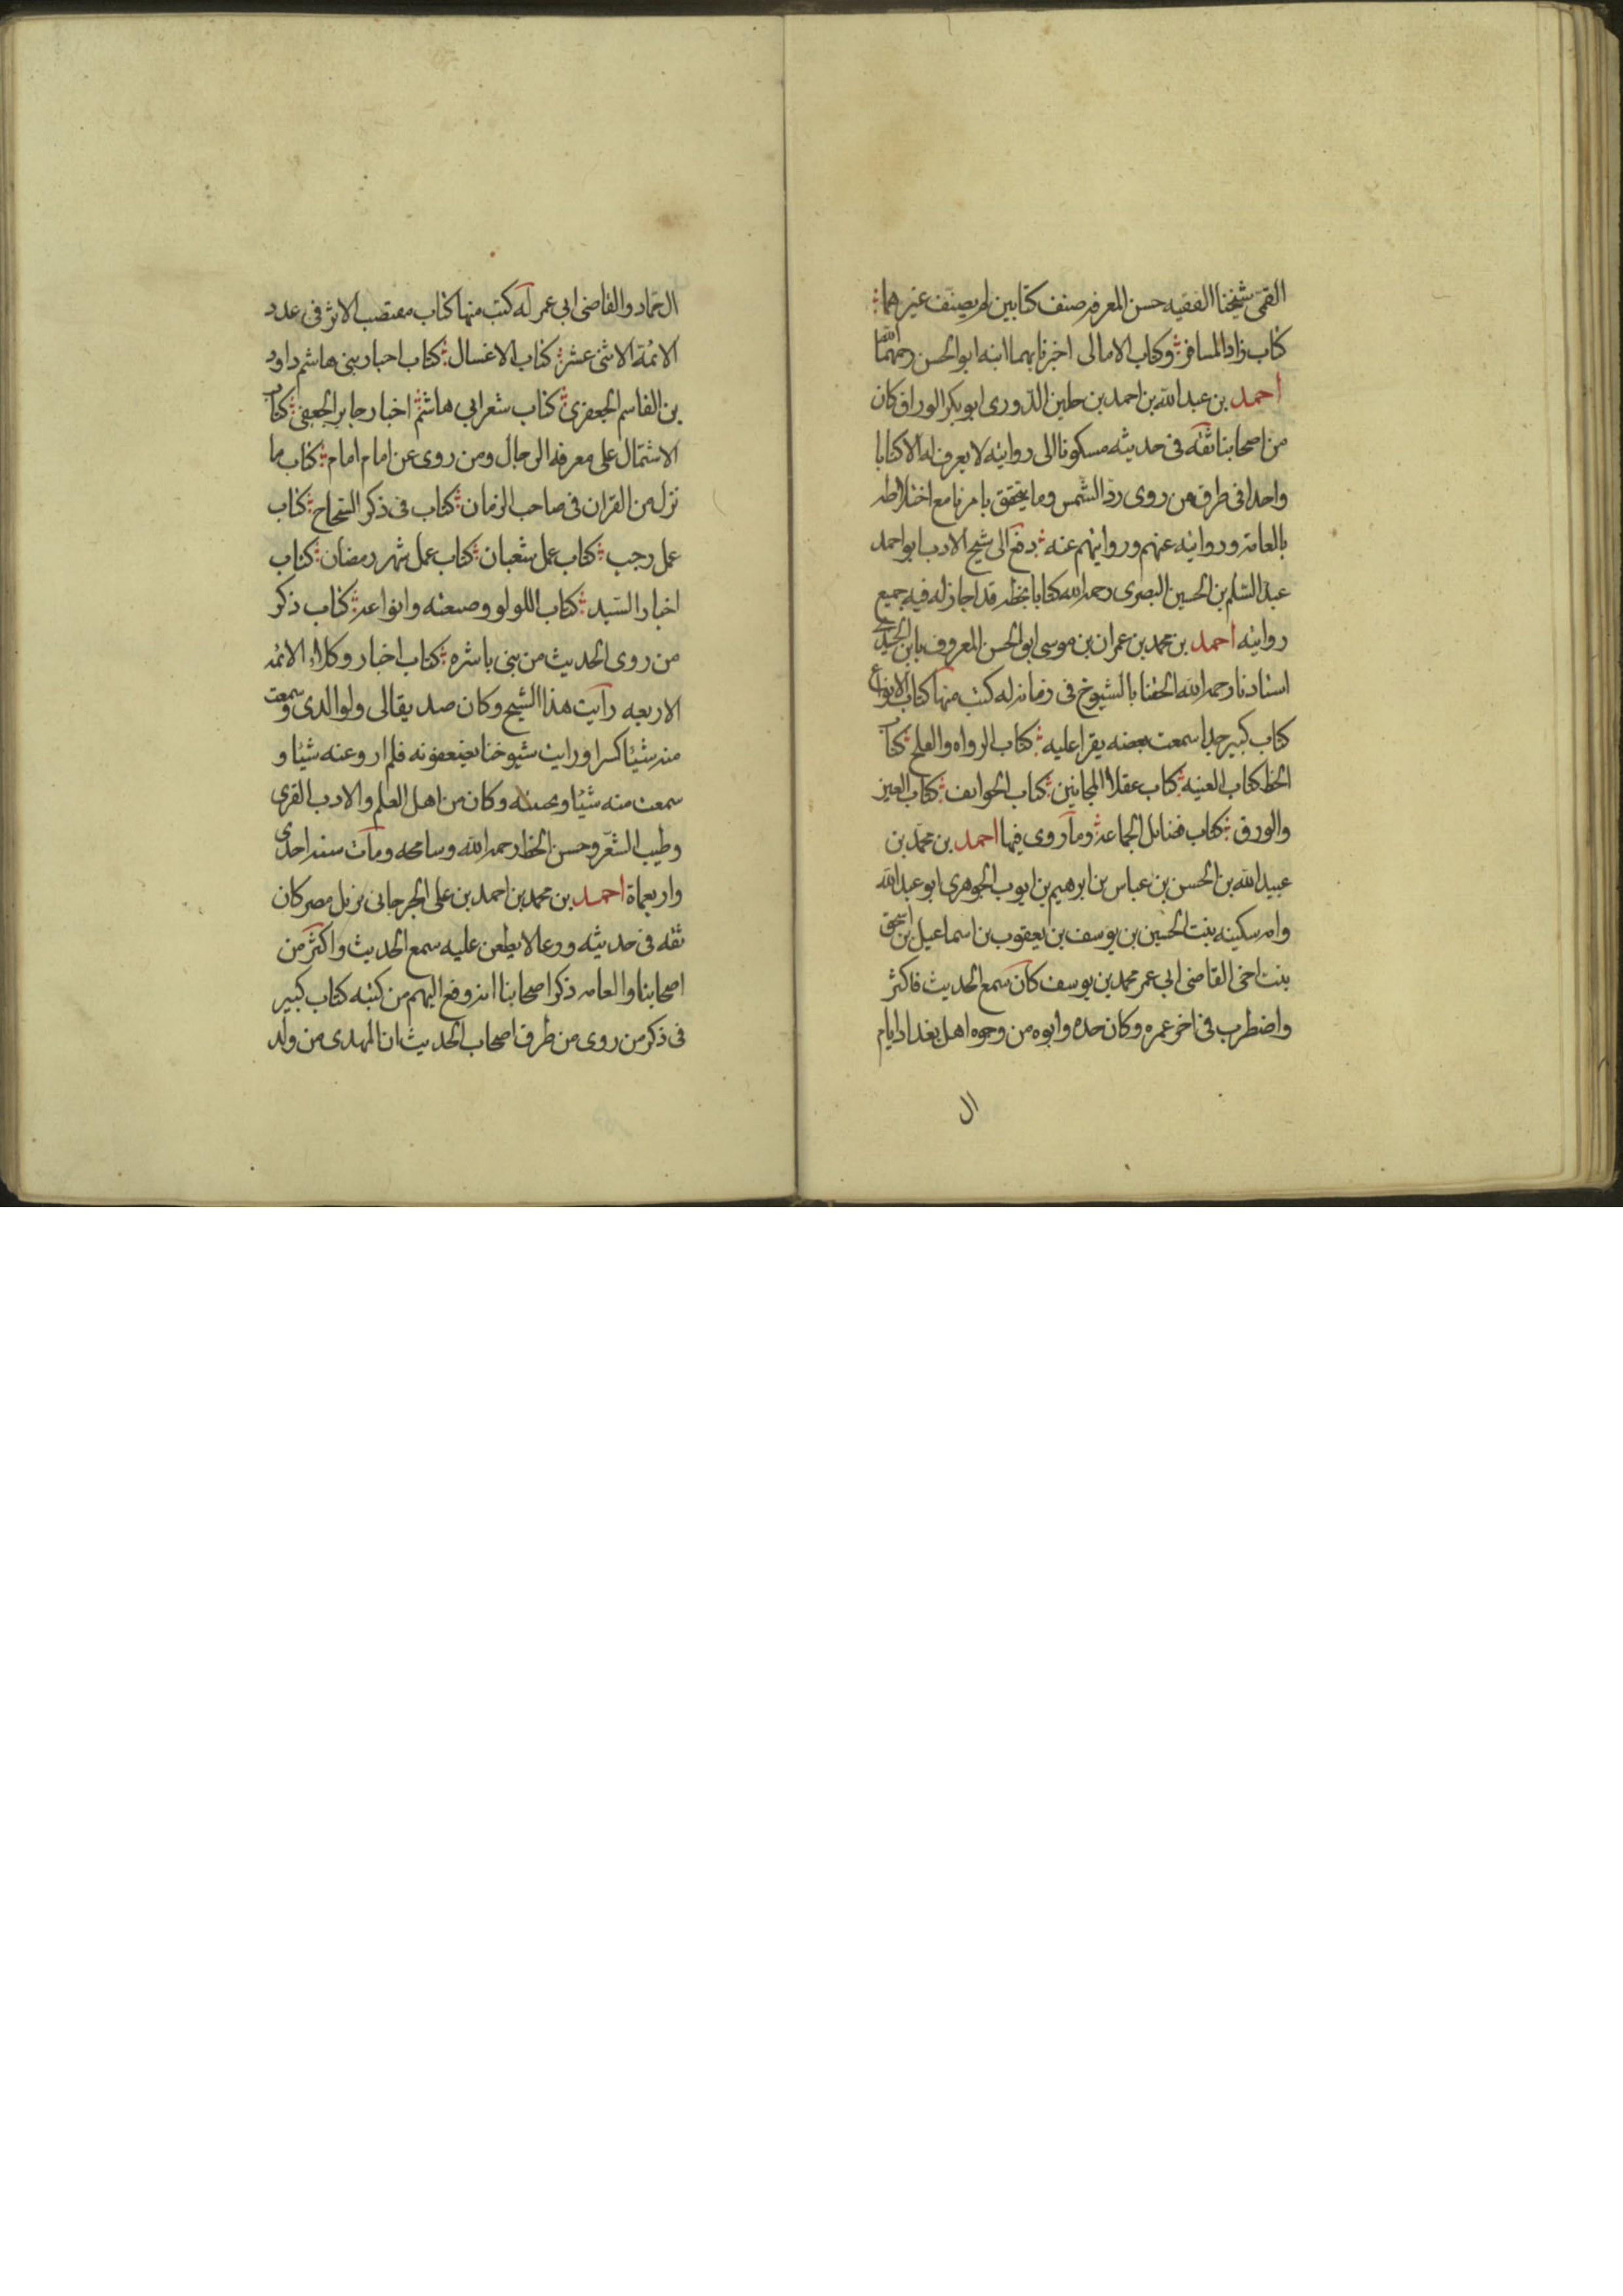 القمى شيخنا الفقيه حسن المعرفه صنف كتابين لم يصنف غيرهما
كتاب زاد المسافر وكتاب الامالى اخبرنا بهما ابنه ابو الحسن رحمهما الله
احمد بن عبد الله بن احمد بن جلين الدورى ابو بكر الوراق كان
من اصحابنا ثقه فى حديثه مسكونا الى روايته لا يعرف له الا كتابا
واحدا فى طرق من روى رد الشمس وما يتحقق بامرنا مع اختلاطه
بالعامة وروايته عنهم وروايتهم عنه دفع الى شيخ الادب ابو احمد
عبد السلم بن الحسين البصرى رحمه الله كتابا بخطه قد اجاز له فيه جميع
روايته احمد بن محمد بن عمران بن موسى ابو الحسن المعروف بابن الجندى
استادنا رحمه الله الحقنا بالشيوخ فى زمانه له كتب منها كتاب الانواع
كتاب كبير جدا سمعت بعضه يقرا عليه كتاب الرواه والفلج كتاب
الخط كتاب الغيبه كتاب عقلاء المجانين كتاب الهواتف كتاب العين
والورق كتاب فضائل الجماعة وما روى فيها احمد بن محمد بن
عبيد الله بن الحسن بن عباس بن ابرهيم بن ايوب الجوهرى ابو عبد الله
وامه سكينه بنت الحسين بن يوسف بن يعقوب بن اسماعيل بن اسحق
بنت اخى القاضى ابى عمر محمد بن يوسف كان سمع الحديث فاكثر
واضطرب فى اخر عمره وكان جده وابوه من وجوه اهل بغداد ايام
ال
ال حماد والقاضى ابى عمر له كتب منها كتاب مقتضب الاثر فى عدد
الائمة الاثنى عشر كتاب الاغسال كتاب اخبار بنى هاشم داود
بن القاسم الجعفرى كتاب شعر ابى هاشم اخبار جابر الجعفى كتاب
الاشتمال على معرفة الرجال ومن روى عن امام امام كتاب ما
نزل من القران فى صاحب الزمان كتاب فى ذكر الشجاج كتاب
عمل رجب كتاب عمل شعبان كتاب عمل شهر رمضان كتاب
اخبار السيد كتاب اللولو وصنعته وانواعه كتاب ذكر
من روى الحديث من بنى ناشره كتاب اخبار وكلاء الائمه
الاربعه رايت هذا الشيخ وكان صديقا لى ولوالدى وسمعت
منه شيئا كثيرا ورايت شيوخنا يضعفونه فلم ارو عنه شيئا و
سمعت منه شيئا وكان من اهل العلم والادب القوى
وطيب الشعر وحسن الخط رحمه الله وسامحه ومات سنه احدى
واربعماة احمد بن محمد بن احمد بن على الجرجانى نزيل مصر كان
ثقه فى حديثه ورعا لا يطعن عليه سمع الحديث واكثر من
اصحابنا والعامه ذكر اصحابنا انه وقع اليهم من كتبه كتاب كبير
فى ذكر من روى من طرق اصحاب الحديث ان المهدى من ولد